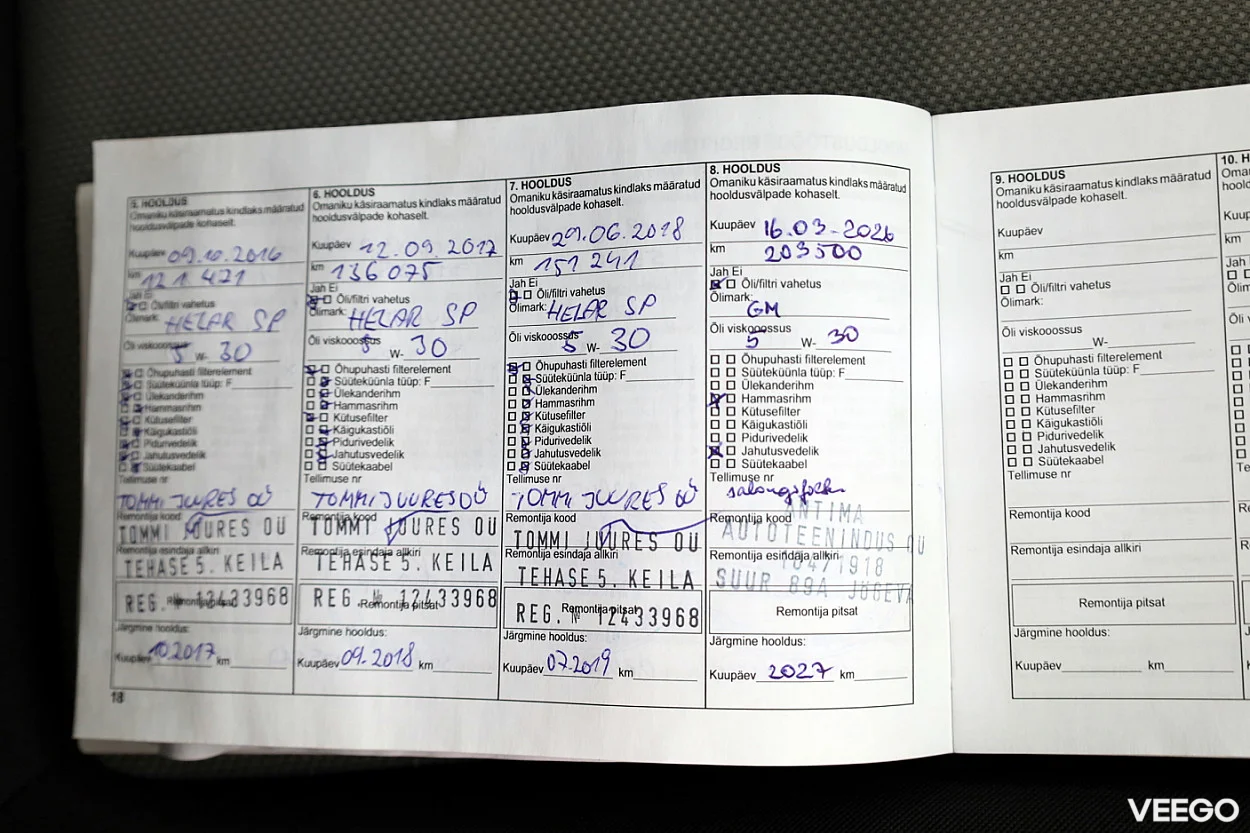 5. HOOLDUS
Omaniku käsiraamatus kindlaks määratud
hooldusvälpade kohaselt.
Kuupäev 09.10.2016
km 121 421
Jah Ei
Õli/filtri vahetus
Õlimark: HELAR SP
Õli viskooossus
5 W- 30
Õhupuhasti filterelement
Süüteküünla tüüp: F
Ülekanderihm
Hammasrihm
Kütusefilter
Käigukastiõli
Pidurivedelik
Jahutusvedelik
Süütekaabel
Tellimuse nr
TOMMI JUURES OÜ
Remontija kood
TOMMI JUURES OÜ
Remontija esindaja allkiri
TEHASE 5. KEILA
Remontija pitsat
REG. № 12433968
Järgmine hooldus:
Kuupäev 10.2017 km
18
6. HOOLDUS
Omaniku käsiraamatus kindlaks määratud
hooldusvälpade kohaselt.
Kuupäev 12.09.2017
km 136 075
Jah Ei
Õli/filtri vahetus
Õlimark: HELAR SP
Õli viskooossus
5 W- 30
Õhupuhasti filterelement
Süüteküünla tüüp: F
Ülekanderihm
Hammasrihm
Kütusefilter
Käigukastiõli
Pidurivedelik
Jahutusvedelik
Süütekaabel
Tellimuse nr
TOMMI JUURES OÜ
Remontija kood
TOMMI JUURES OÜ
Remontija esindaja allkiri
TEHASE 5. KEILA
Remontija pitsat
REG. № 12433968
Järgmine hooldus:
Kuupäev 09.2018 km
7. HOOLDUS
Omaniku käsiraamatus kindlaks määratud
hooldusvälpade kohaselt.
Kuupäev 29.06.2018
km 151 241
Jah Ei
Õli/filtri vahetus
Õlimark: HELAR SP
Õli viskooossus
5 W- 30
Õhupuhasti filterelement
Süüteküünla tüüp: F
Ülekanderihm
Hammasrihm
Kütusefilter
Käigukastiõli
Pidurivedelik
Jahutusvedelik
Süütekaabel
Tellimuse nr
TOMMI JUURES OÜ
Remontija kood
TOMMI JUURES OÜ
Remontija esindaja allkiri
TEHASE 5. KEILA
Remontija pitsat
REG. № 12433968
Järgmine hooldus:
Kuupäev 07.2019 km
8. HOOLDUS
Omaniku käsiraamatus kindlaks määratud
hooldusvälpade kohaselt.
Kuupäev 16.03-2026
km 203500
Jah Ei
Õli/filtri vahetus
Õlimark:
GM
Õli viskooossus
5 W- 30
Õhupuhasti filterelement
Süüteküünla tüüp: F
Ülekanderihm
Hammasrihm
Kütusefilter
Käigukastiõli
Pidurivedelik
Jahutusvedelik
Süütekaabel
Tellimuse nr
Remontija kood
ANTIMA
AUTOTEENINDUS OÜ
Remontija esindaja allkiri
10471918
SUUR 89A JÕGEVA
Remontija pitsat
Järgmine hooldus:
Kuupäev 2027 km
9. HOOLDUS
Omaniku käsiraamatus kindlaks määratud
hooldusvälpade kohaselt.
Kuupäev
km
Jah Ei
Õli/filtri vahetus
Õlimark:
Õli viskooossus
W-
Õhupuhasti filterelement
Süüteküünla tüüp: F
Ülekanderihm
Hammasrihm
Kütusefilter
Käigukastiõli
Pidurivedelik
Jahutusvedelik
Süütekaabel
Tellimuse nr
Remontija kood
Remontija esindaja allkiri
Remontija pitsat
Järgmine hooldus:
Kuupäev km
10. H
km
Jah
VEEGO